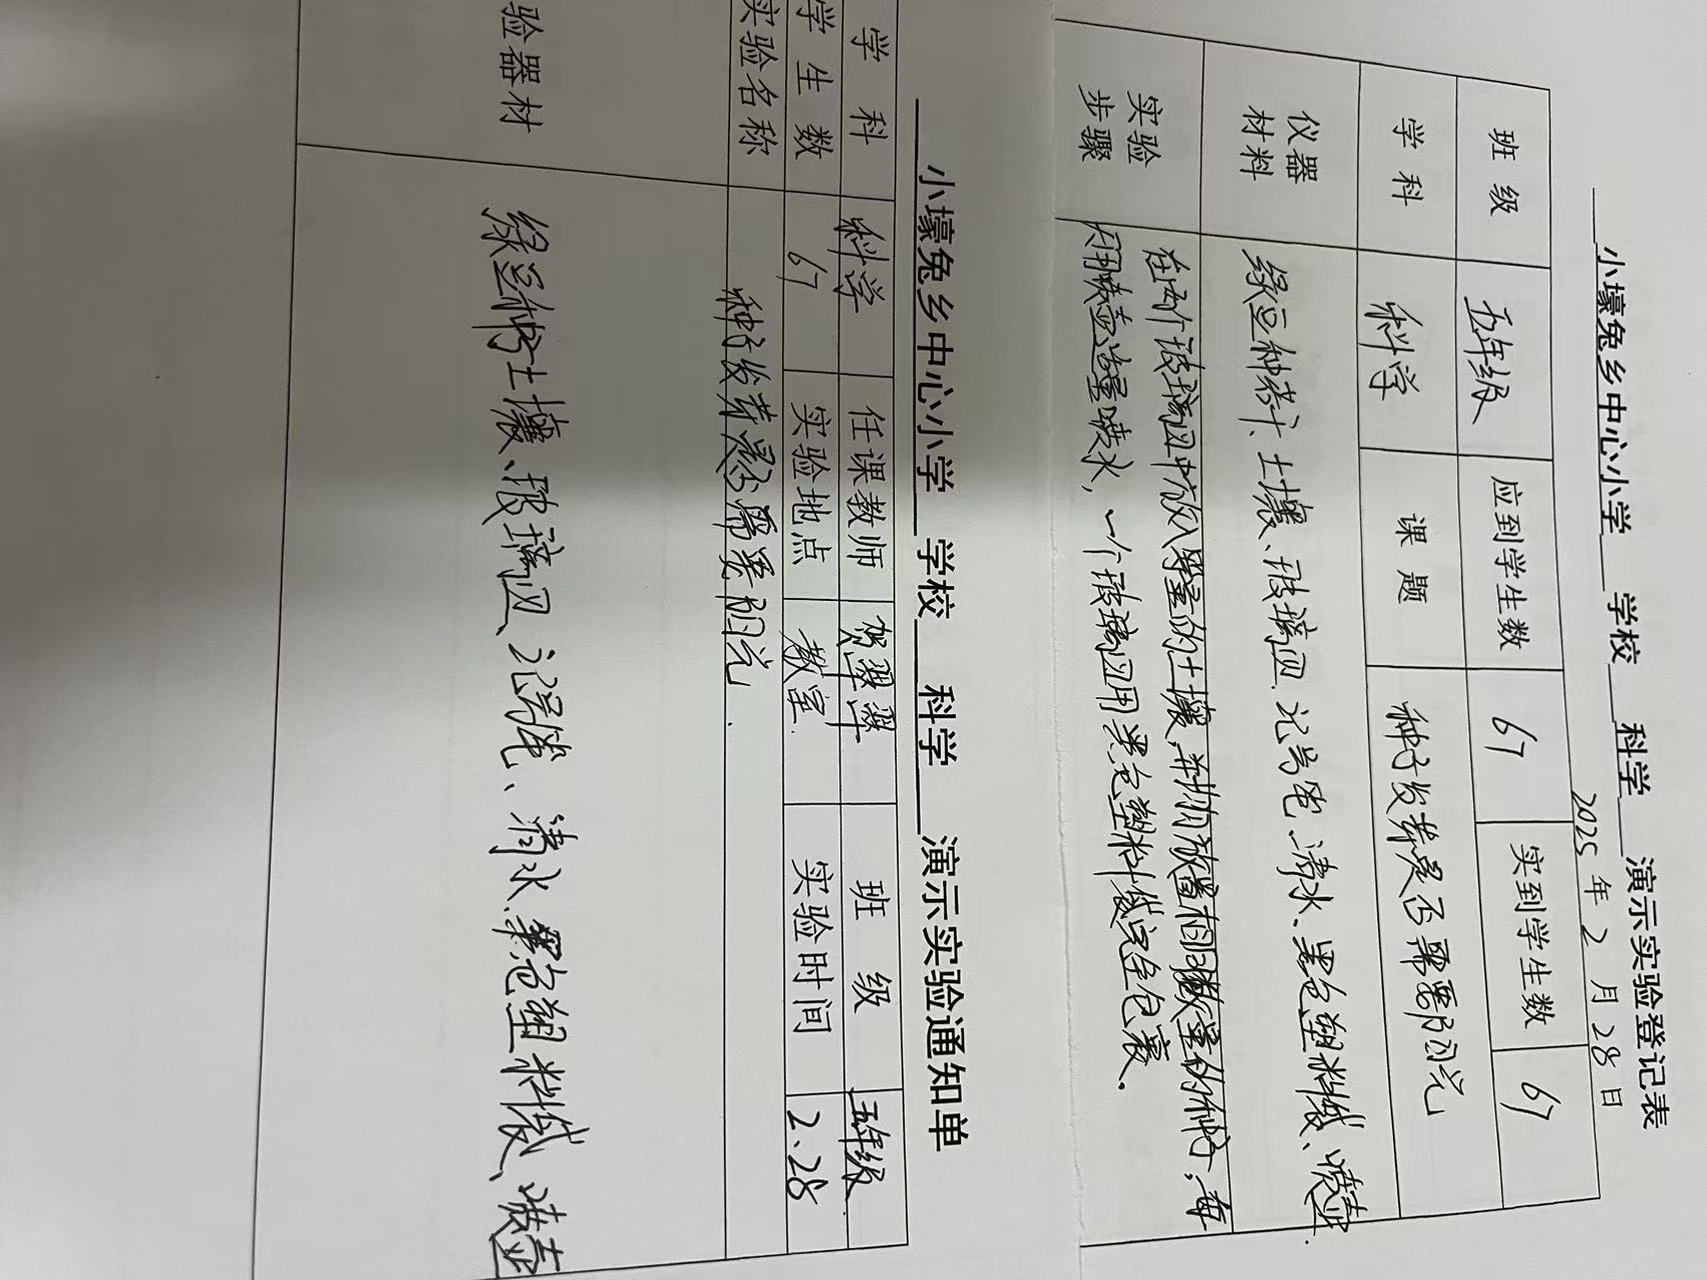 小壕兔乡中心小学 学校 科学 演示实验登记表
2025年2月28日
班级 五年级 应到学生数 67 实到学生数 67
学科 科学 课题 种子发芽是否需要阳光
仪器材料 绿豆种子、土壤、玻璃皿、记号笔、清水、黑色塑料袋、喷壶.
实验步骤 在两个玻璃皿中放入等量的土壤,并均放置相同数量的种子,每
用喷壶适量喷水,一个玻璃皿用黑色塑料袋完全包裹.
小壕兔乡中心小学 学校 科学 演示实验通知单
学科 科学 任课教师 班级 五年级
学生数 67 实验地点 教室 实验时间 2.28
实验名称 种子发芽是否需要阳光.
验器材 绿豆种子、土壤、玻璃皿、记号笔、清水、黑色塑料袋、喷壶